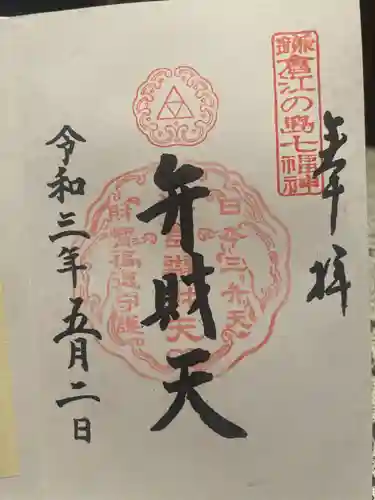 奉拝
鎌倉江の島七福神
弁財天
日本三弁天
財宝福運守護
令和三年五月二日